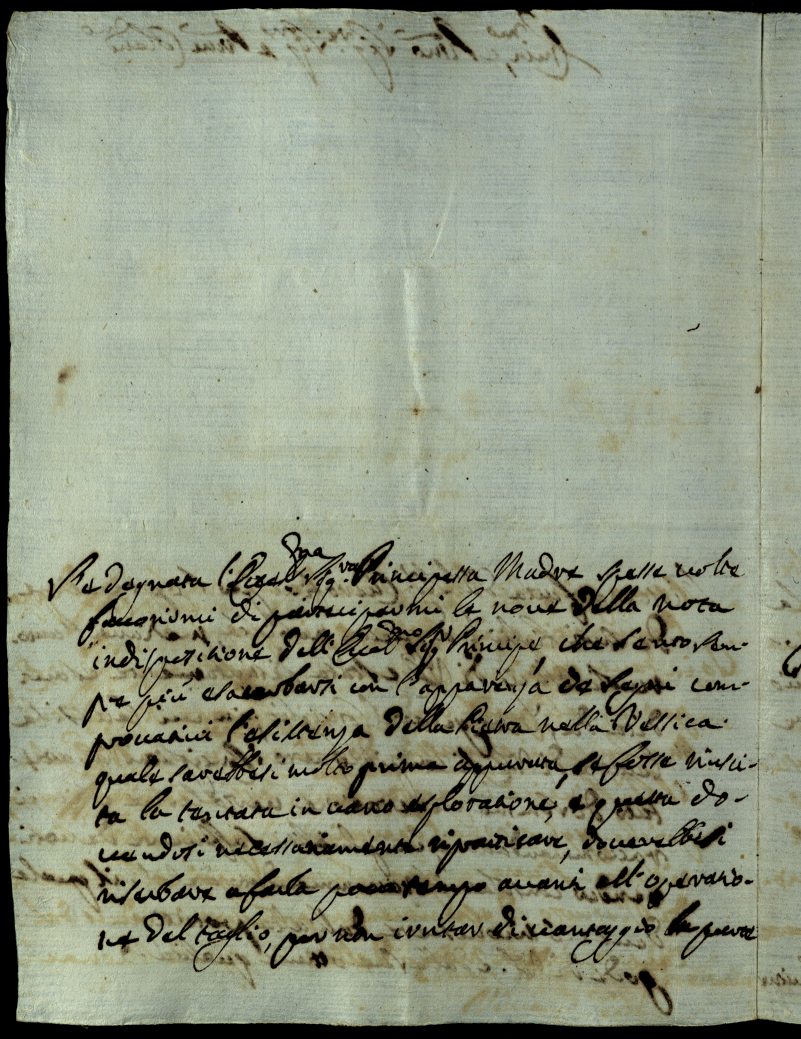 S'è degnata l'Eccel.ma Sig.ra Principessa Madre spesse volte
favorirmi di participarmi le nove della nota
indispositione dell'Eccel.mo Sig.r Principe, che sento sem-
pre più esacerbarsi con l'apparenza de segni com-
provativi l'esistenza della Pietra nella Vessica
quale sarebbesi molto prima appurata, se fosse riusci-
ta la tentata in vano esploratione, e questa do-
vendosi necessariamente ripraticare, doverebbesi
riserbare a farla poco tempo avanti all'operatio-
ne del taglio, per non irritar di vantaggio la parte